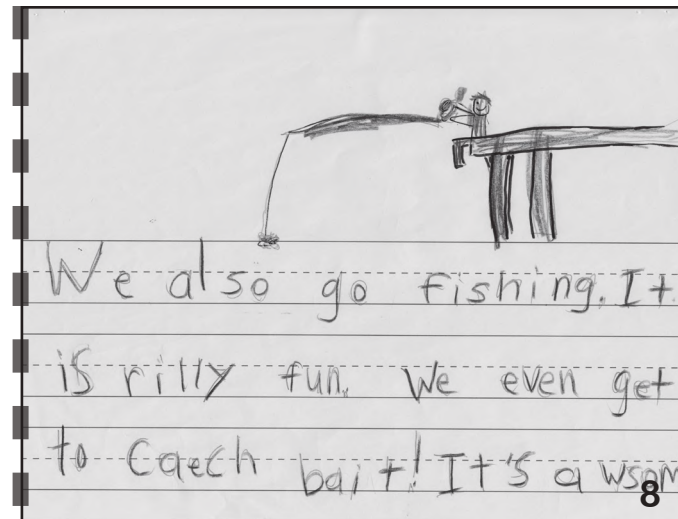 We also go fishing. It
is rilly fun. We even get
to Caech bait! It's awsom
8